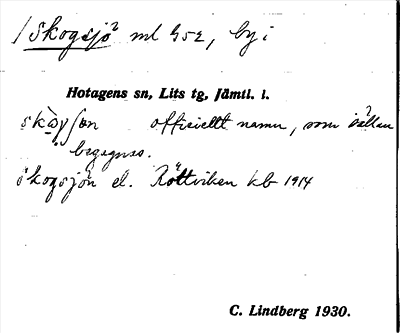 / Skogsjö² ml G52, by i
Hotagens sn, Lits tg, Jämtl. l.
officiellt namn, som sällan
begagnas.
Skogsjön el. Rötviken kb 1914
C. Lindberg 1930.